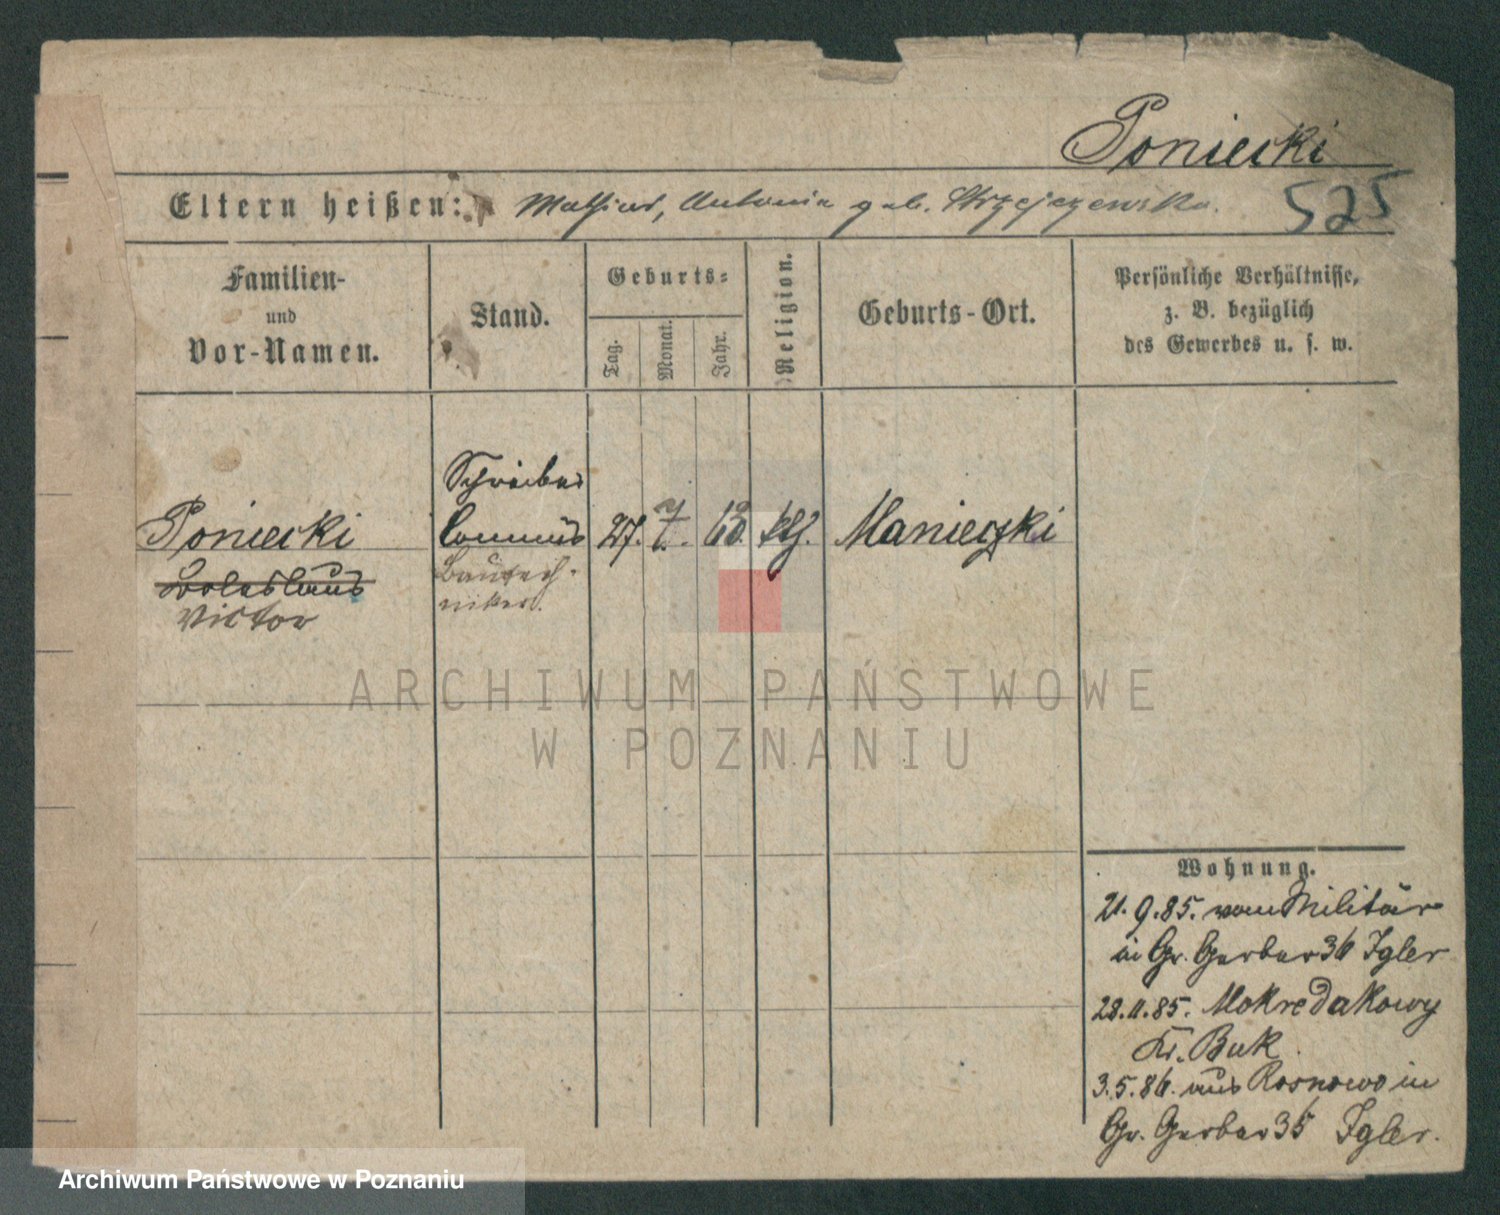 Poniecki
Eltern heißen: Mathias, Antonia geb. Strzejczewska.
525
Familien-
und
Vor-Namen.
Stand.
Geburts-
Tag.
Monat.
Jahr.
Religion.
Geburts-Ort.
Persönliche Verhältnisse,
z. B. bezüglich
des Gewerbes u. s. w.
Poniecki
Boleslaus
Victor
Schreiber
Commis
Bautech-
niker.
27.
7.
63.
kth.
Manieczki
ARCHIWUM PAŃSTWOWE
W POZNANIU
Wohnung.
21.9.85. vom Militär
in Gr. Gerber 36 Igler
28.11.85. Mokre Dakowy
Kr. Buk.
3.5.86. aus Rosnowo in
Gr. Gerber 35 Igler.
Archiwum Państwowe w Poznaniu